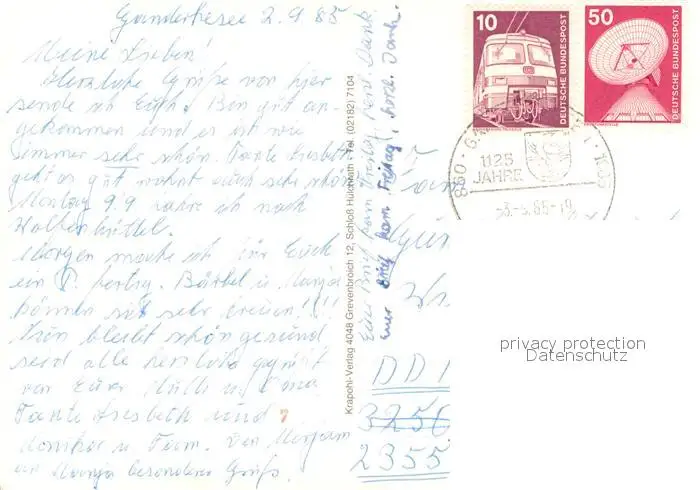 Ganderkesee 2.9.85
Meine Lieben!
Herzliche Grüße von hier
sende ich Euch. Bin gut an-
gekommen und es ist wie
immer sehr schön. Tante Liesbeth
geht es gut wohnt auch sehr schön
Montag 9.9 fahre ich nach
Wolfenbüttel.
Morgen mache ich für Euch
ein P. fertig. Bärbel u. Manja
können sich sehr freuen!!!!
Nun bleibt schön gesund
seid alle herzlich gegrüßt
von Eurer Mutti u. Oma
Tante Liesbeth und
Monika u. Fam. Von Mirjam
an Manja besondere Grüße.
Krapohl-Verlag 4048 Grevenbroich 12, Schloß Hülchrath · Tel. (02182) 7104
Euer Brief kam Freitag, herzl. Dank.
Euer Brief kam Freitag, herzl. Dank.
10
DEUTSCHE BUNDESPOST
50
DEUTSCHE BUNDESPOST
860
1125
JAHRE
860 · 1985
Fam.
DD
3256
2355
privacy protection
Datenschutz